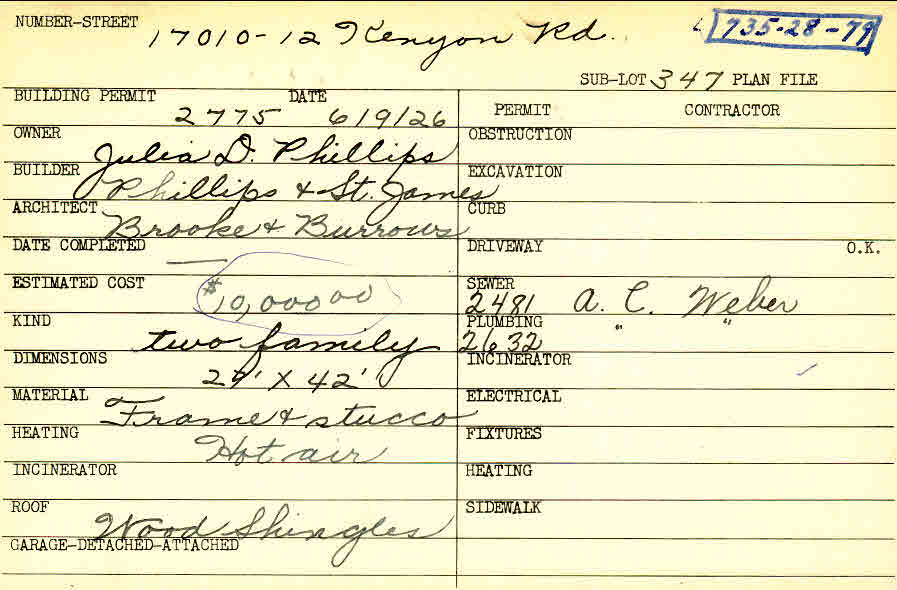 NUMBER-STREET 17010-12 Kenyon Rd. 735-28-79
SUB-LOT 347 PLAN FILE
BUILDING PERMIT 2775 DATE 6/9/26
PERMIT CONTRACTOR
OWNER Julia D. Phillips
OBSTRUCTION
BUILDER Phillips & St. James
EXCAVATION
ARCHITECT Brooke & Burrows
CURB
DATE COMPLETED —
DRIVEWAY O.K.
ESTIMATED COST $10,000 00
SEWER 2481 A. C. Weber
KIND two family
PLUMBING 2632 " "
DIMENSIONS 29' X 42'
INCINERATOR ✓
MATERIAL Frame & stucco
ELECTRICAL
HEATING Hot air
FIXTURES
INCINERATOR
HEATING
ROOF Wood Shingles
SIDEWALK
GARAGE-DETACHED-ATTACHED